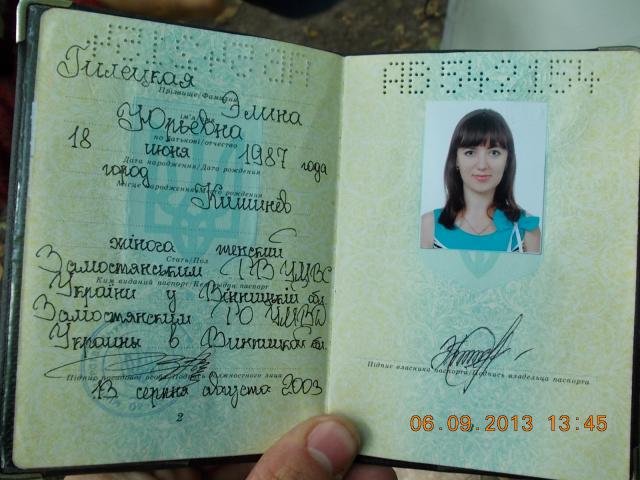 Гилецкая
Прізвище/Фамилия
Элина
Юрьевна
по батькові/отчество
18 июня 1987 года
Дата народження/Дата рождения
город
Місце народження/Место рождения
Кишинёв
жіноча женский
Стать/Пол
Замостянським
Ким виданий паспорт/Кем выдан паспорт
України у Вінницькій обл.
Замостянским РО УМВД
Украины в Винницкой обл.
Підпис посадової особи/Подпись должностного лица
13 серпня августа 2003
2
АВ 542154
Підпис власника паспорта/Подпись владельца паспорта
06.09.2013 13:45